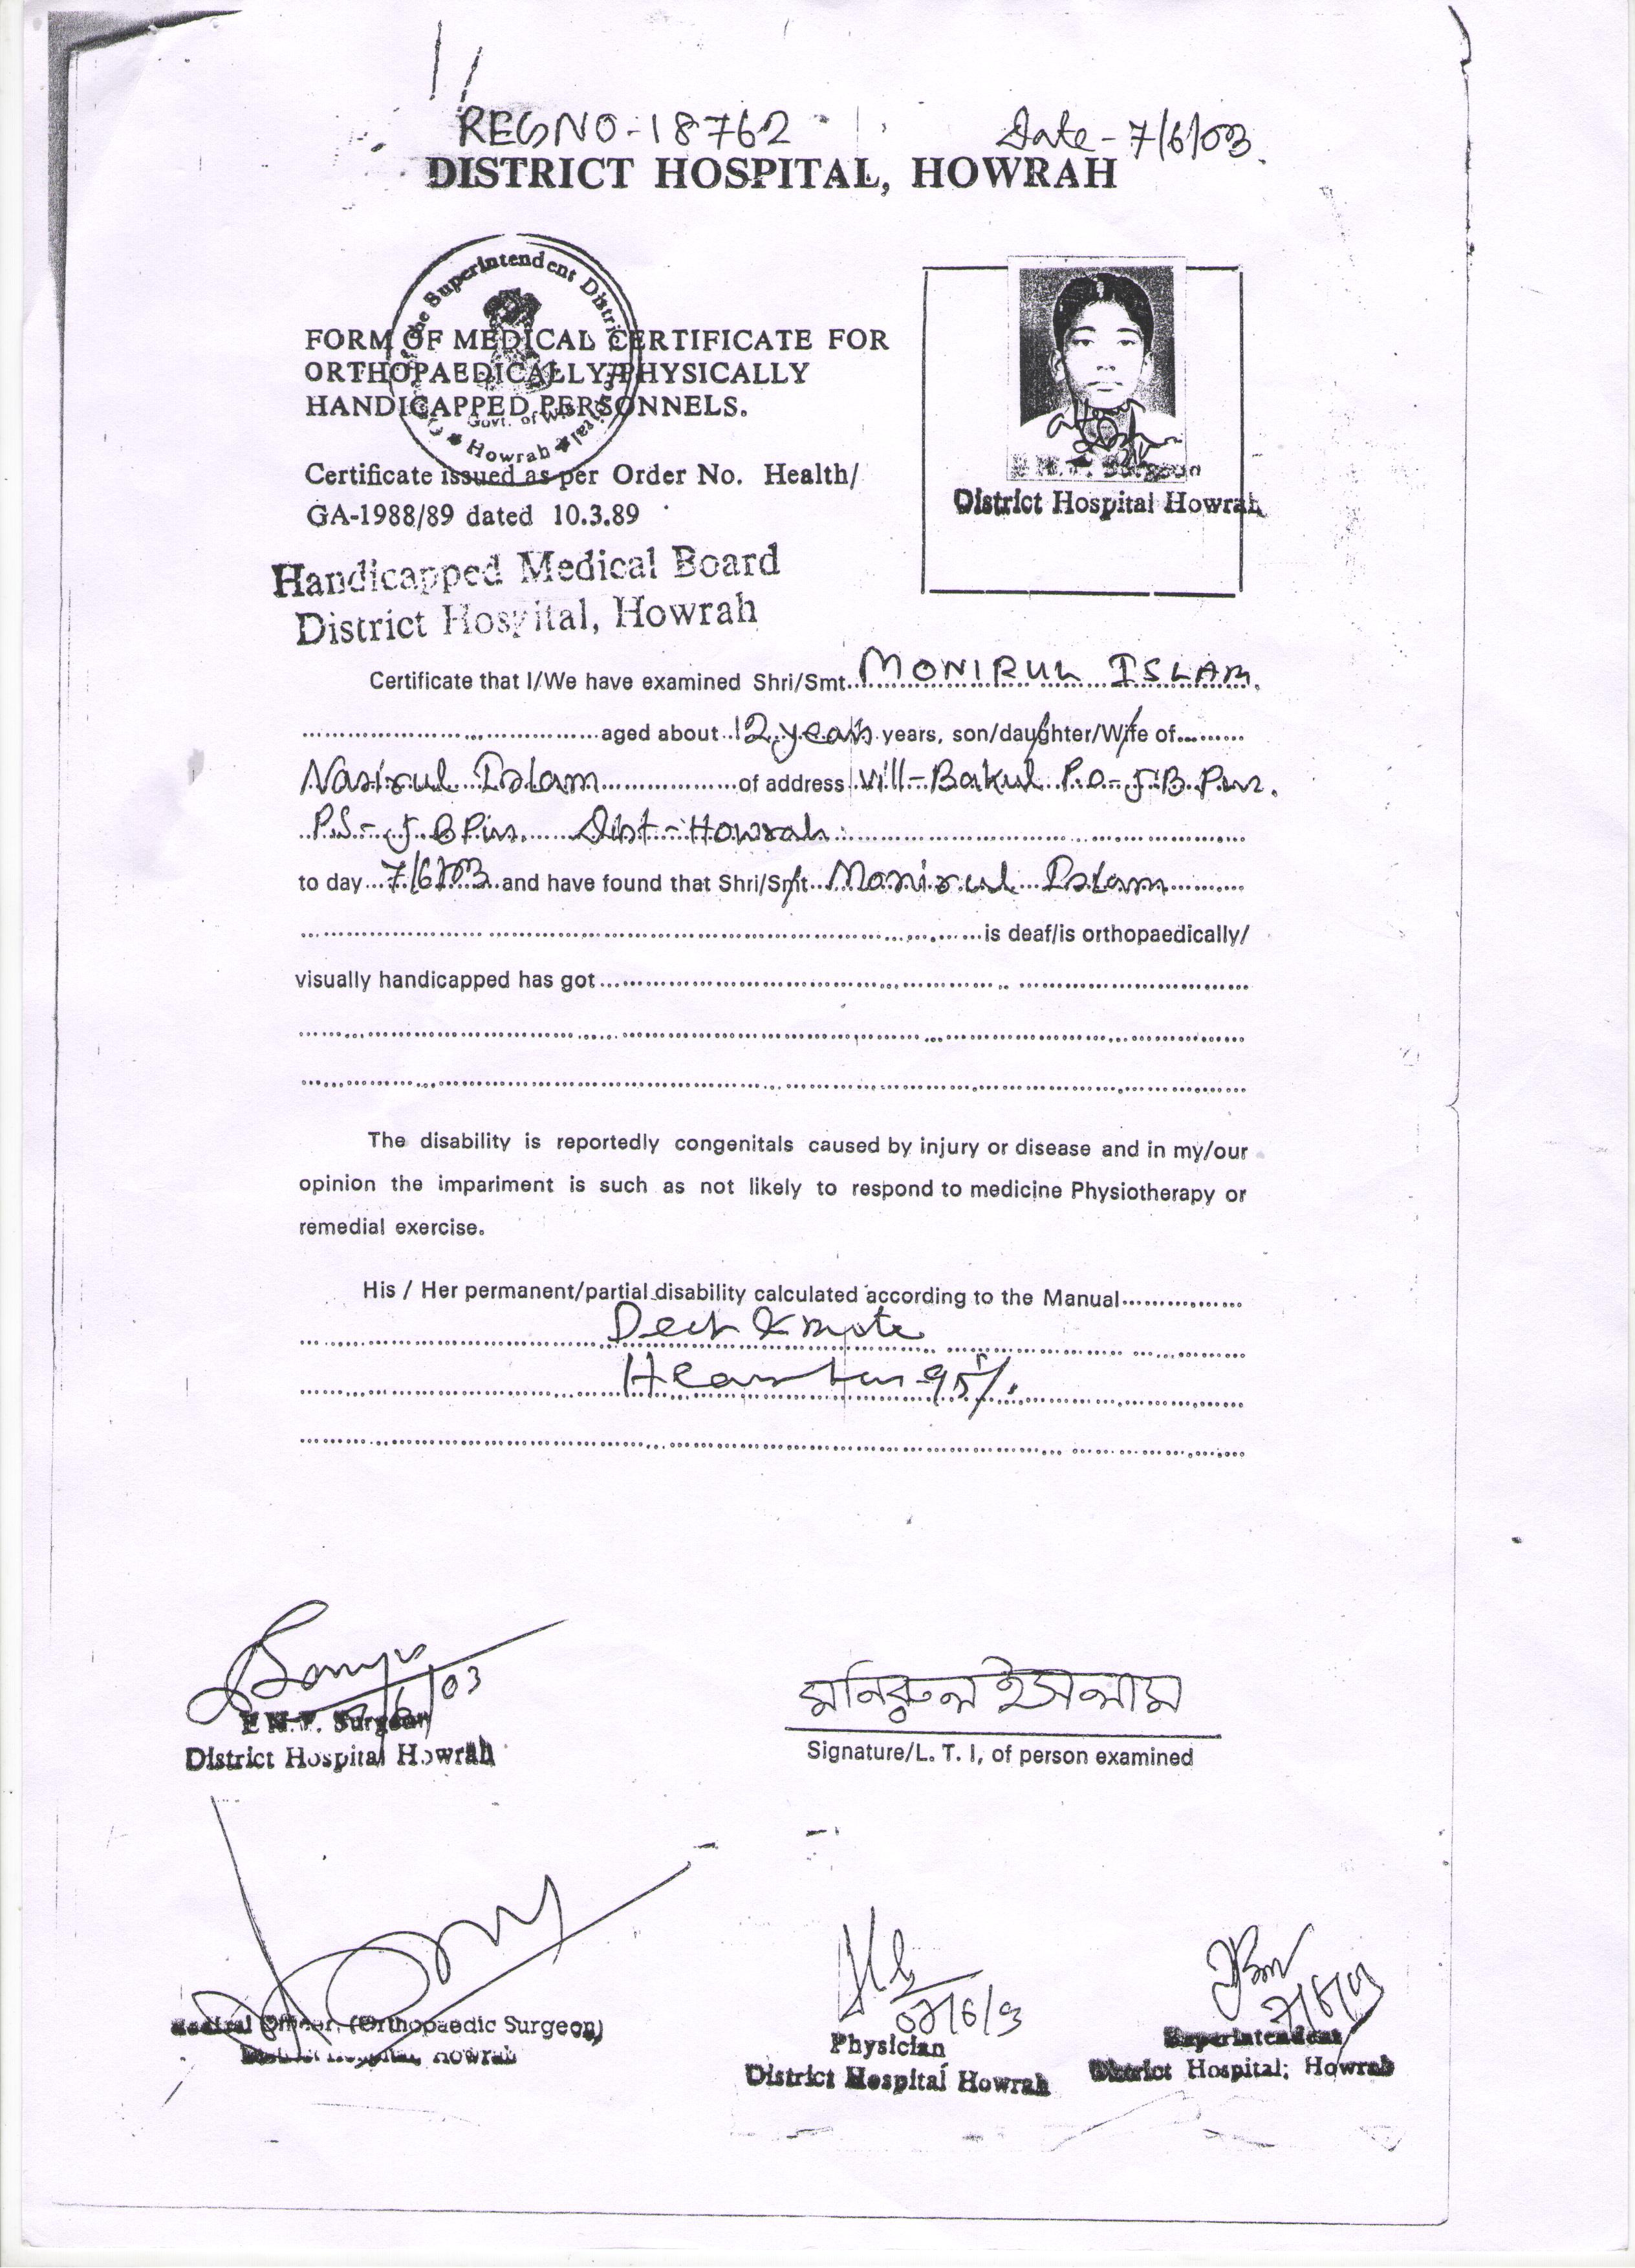 REG NO-18762 Date-7/6/03
DISTRICT HOSPITAL, HOWRAH
the Superintendent District
Govt. of W.B.
Howrah
FORM OF MEDICAL CERTIFICATE FOR
ORTHOPAEDICALLY/PHYSICALLY
HANDICAPPED PERSONNELS.
Certificate issued as per Order No. Health/
GA-1988/89 dated 10.3.89
Surgeon
District Hospital Howrah
Handicapped Medical Board
District Hospital, Howrah
Certificate that I/We have examined Shri/Smt. MONIRUL ISLAM.
aged about 12 years years, son/daughter/Wife of
Nasirul Islam of address Vill-Bakul P.O-J.B.Pur.
P.S-J.B.Pur. Dist-Howrah
to day 7/6/03 and have found that Shri/Smt. Monirul Islam
is deaf/is orthopaedically/
visually handicapped has got
The disability is reportedly congenitals caused by injury or disease and in my/our
opinion the impariment is such as not likely to respond to medicine Physiotherapy or
remedial exercise.
His / Her permanent/partial disability calculated according to the Manual
& mute
95%.
7/6/03
E.N.T. Surgeon
District Hospital Howrah
মনিরুল ইসলাম
Signature/L. T. I, of person examined
Medical Officer, (Orthopaedic Surgeon)
District Hospital, Howrah
07/6/3
Physician
District Hospital Howrah
7/6/03
Superintendent
District Hospital; Howrah